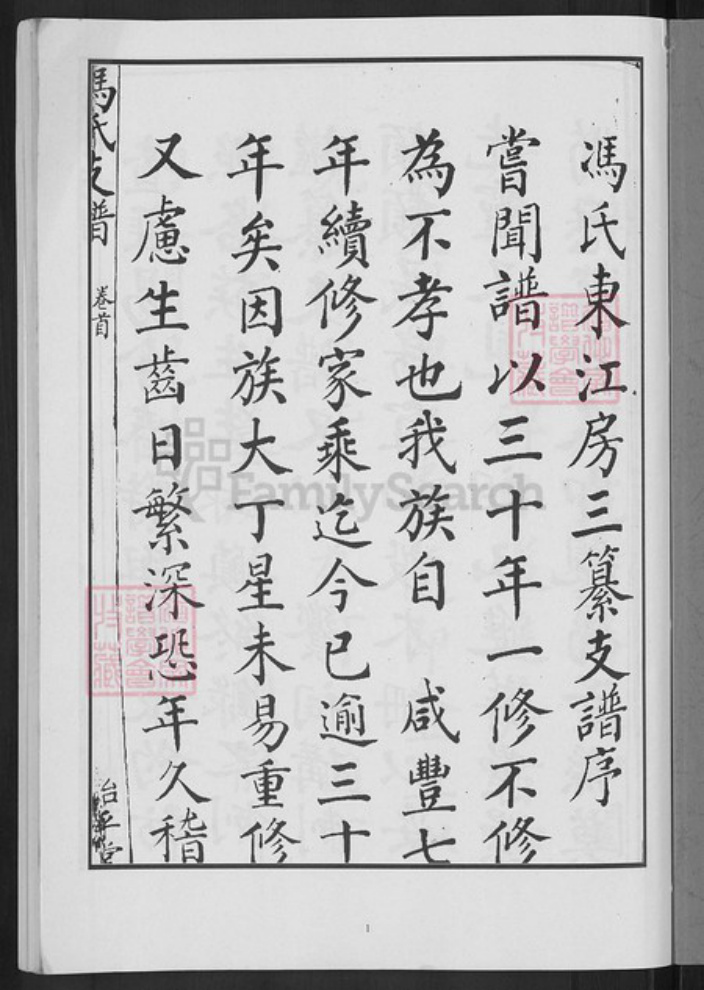 馮氏東江房三纂支譜序
嘗聞譜以三十年一修不修
為不孝也我族自 咸豐七
年續修家乘迄今已逾三十
年矣因族大丁星未易重修
又慮生齒日繁深恐年久稽
馮氏支譜 卷首 治平堂
FamilySearch
1